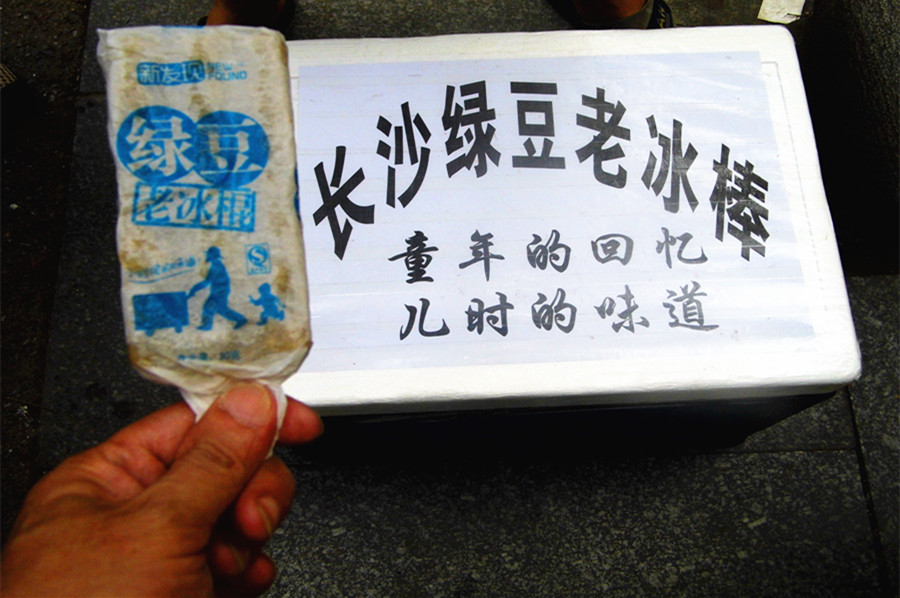 新发现
NEW
FOUND
绿豆
老冰棍
长沙绿豆老冰棒
童年的回忆
儿时的味道